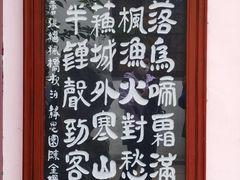 落烏啼霜滿
楓漁火對愁
蘇城外寒山
半鍾聲到客
張繼楓橋夜泊 靜思園陳金